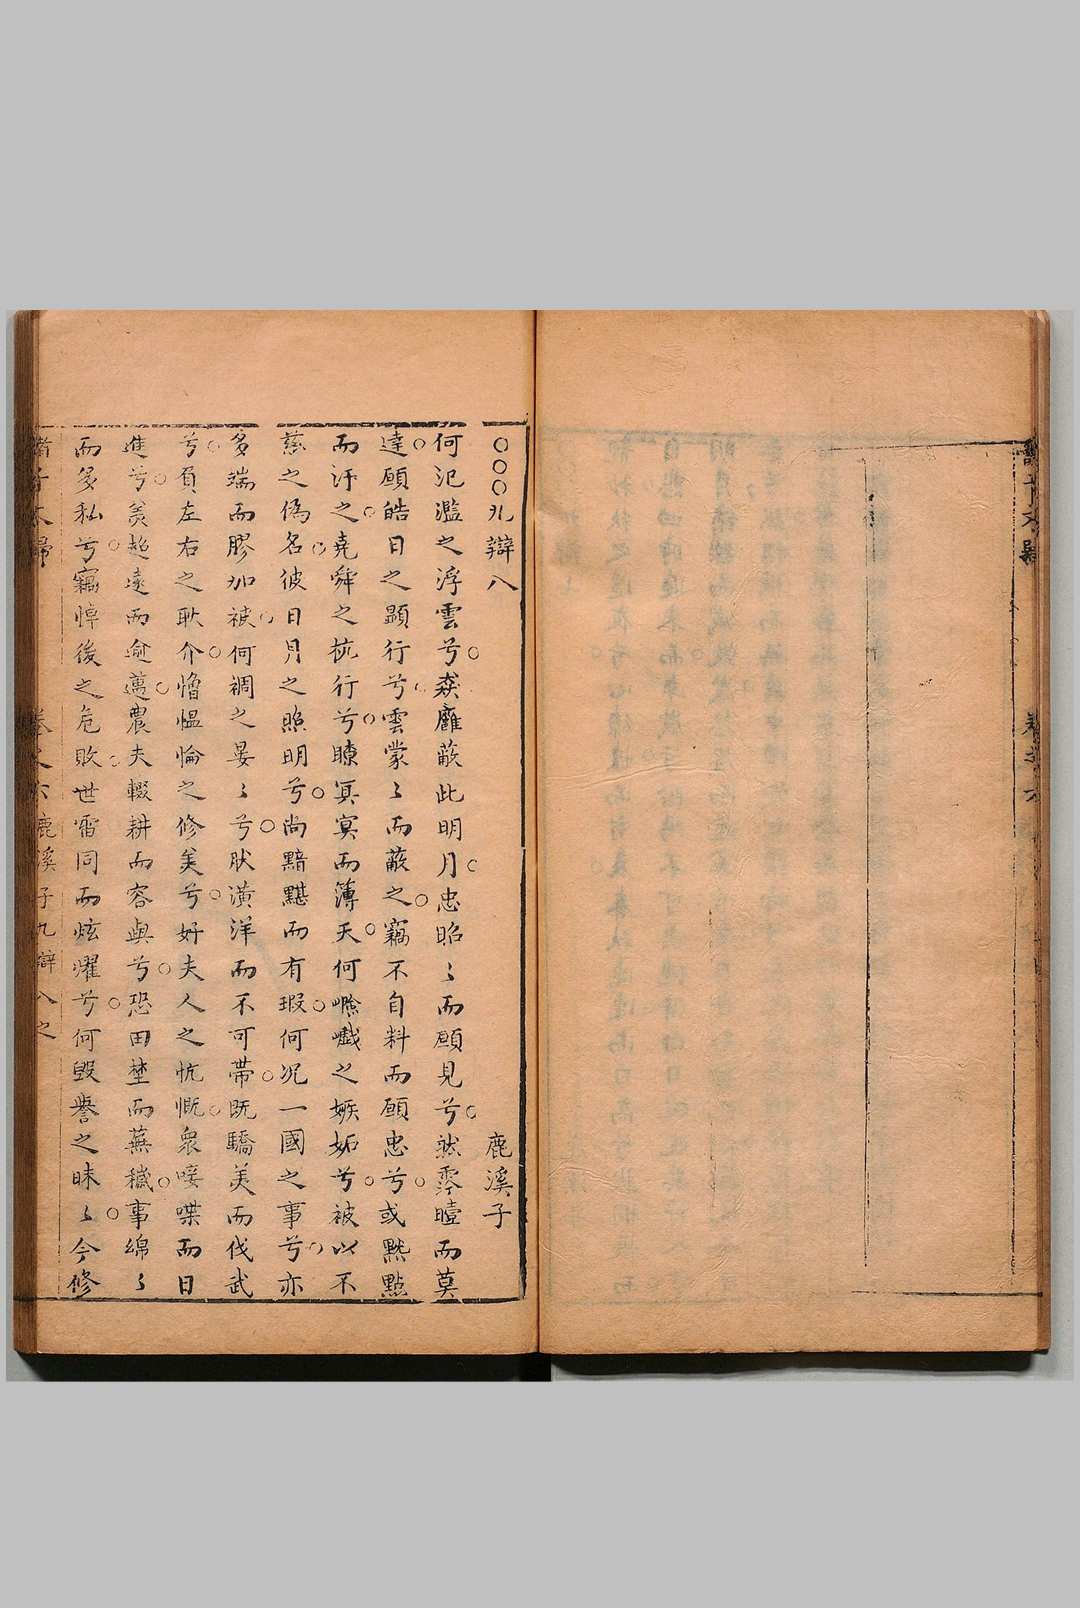 ○○○九辯八　鹿溪子
何氾濫之浮雲兮猋廱蔽此明月忠昭〻而願見兮然霠曀而莫
達願皓日之顯行兮雲蒙〻而蔽之竊不自料而願忠兮或黕點
而汙之堯舜之抗行兮瞭冥冥而薄天何嶮巇之嫉妬兮被以不
慈之偽名彼日月之照明兮尚黯黮而有瑕何况一國之事兮亦
多端而膠加被何裯之晏〻兮肰潢洋而不可帶既驕美而伐武
兮負左右之耿介憎愠惀之修美兮好夫人之忼慨衆唼喋而日
進兮美超遠而逾邁農夫輟耕而容與兮恐田埜而蕪穢事綿〻
而多私兮竊悼後之危敗世雷同而炫燿兮何毀譽之昧〻今修
諸子大歸　卷之六　鹿溪子九辯八之